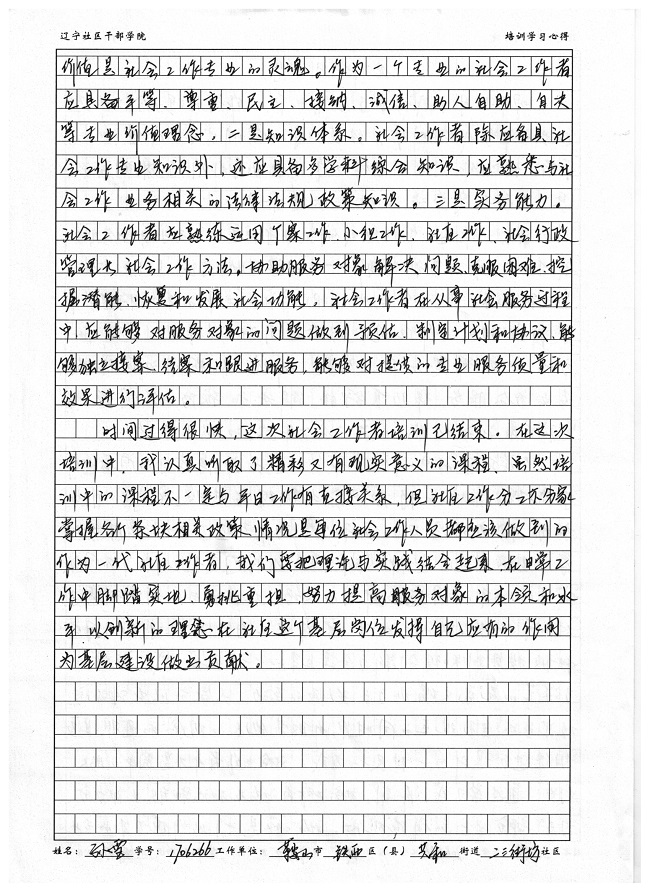 辽宁社区干部学院 培训学习心得
价值是社会工作专业的灵魂。作为一个专业的社会工作者
应具备平等、尊重、民主、接纳、诚信、助人自助、自决
等专业价值理念，二是知识体系。社会工作者除应备具社
会工作专业知识外，还应具备多学科综合知识，应熟悉与社
会工作业务相关的法律法规政策知识。三是实务能力。
社会工作者应熟练运用个案工作、小组工作、社区工作、社会行政
管理大社会工作方法。协助服务对象解决问题、克服困难、挖
掘潜能、恢复和发展社会功能，社会工作者在从事社会服务过程
中应能够对服务对象的问题做到预估、制定计划和协议、能
够独立接案、结案和跟进服务，能够对提供的专业服务质量和
效果进行评估。
时间过得很快，这次社会工作者培训已结束。在这次
培训中，我认真听取了精彩又有现实意义的课程，虽然培
训中的课程不一定与平日工作有直接关系，但社区工作分工不分家
掌握各个条块相关政策情况是单位社会工作人员都应该做到的
作为一代社区工作者，我们要把理论与实践结合起来，在日常工
作中脚踏实地、勇挑重担，努力提高服务对象的本领和水
平，以创新的理念在社区这个基层岗位发挥自己应有的作用
为基层建设做出贡献。
姓名：孙雪 学号：1706266 工作单位：鞍山市 铁西区（县） 共和街道 二三街坊社区